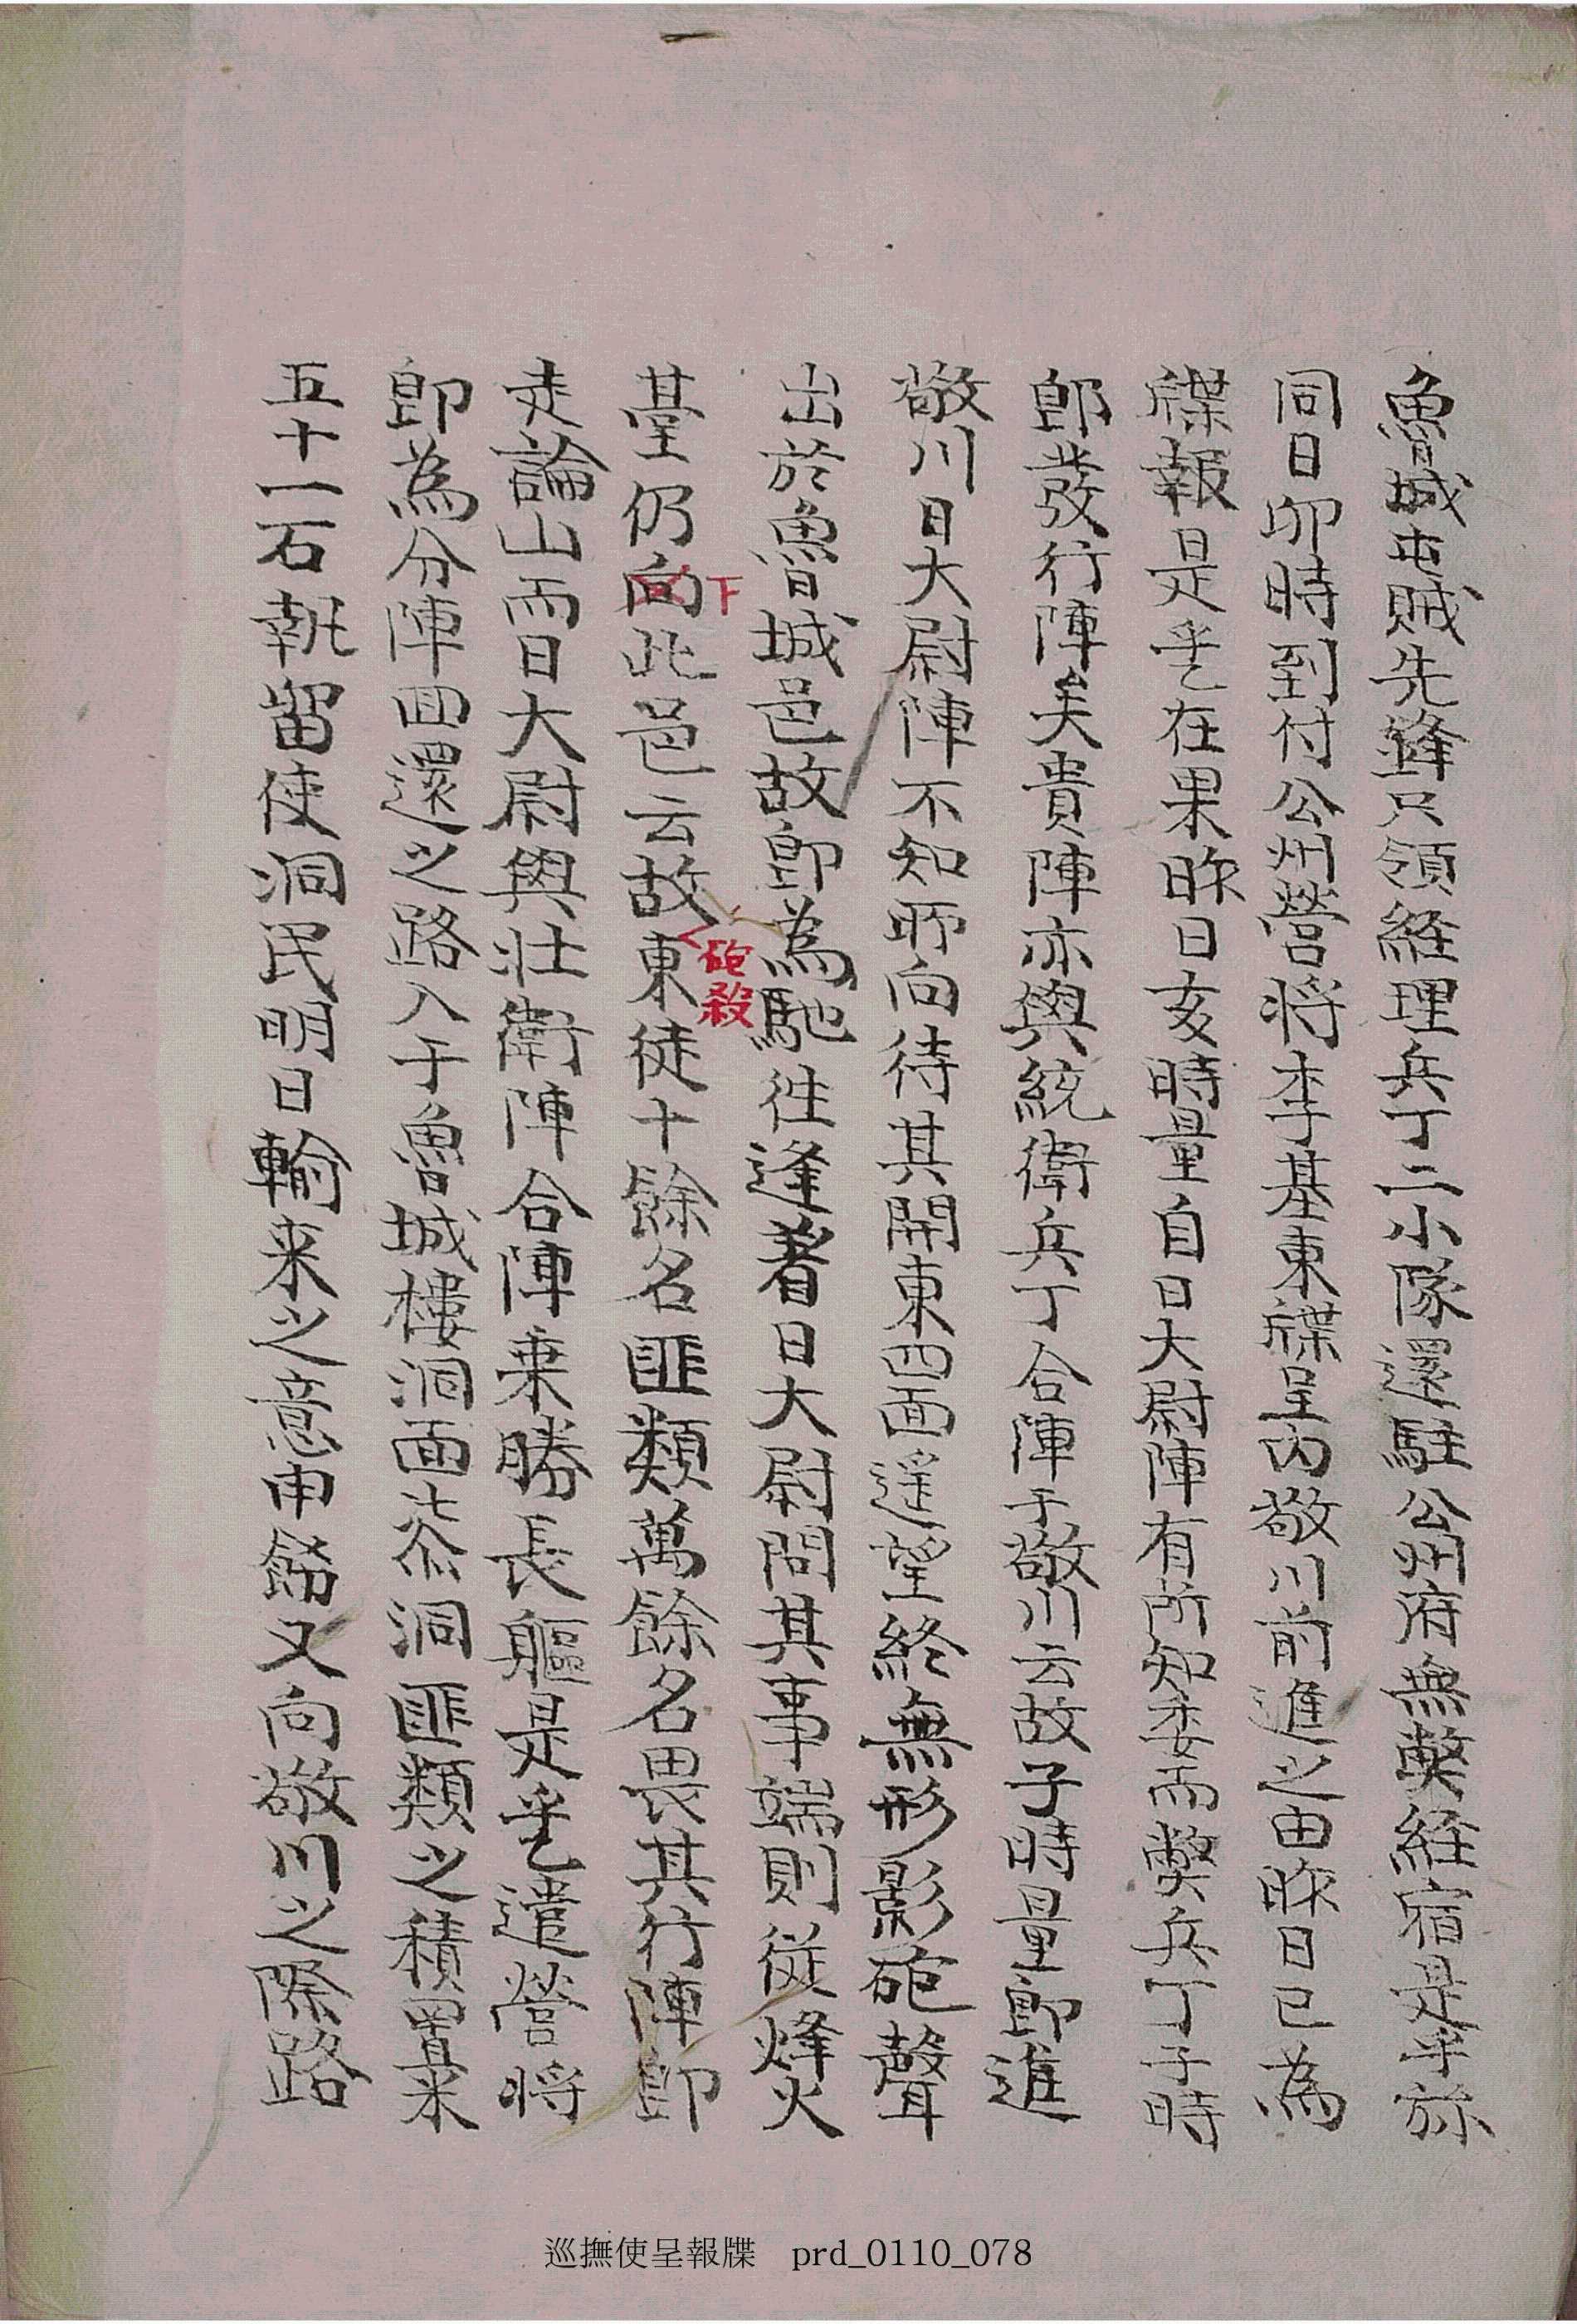 魯城屯賊先鋒只領経理兵丁二小隊還駐公州府無弊経宿是乎旀
同日卯時到付公州營將李基東牒呈內敬川前進之由昨日已為
牒報是乎在果昨日亥時量自日大尉陣有所知委而弊兵丁子時
卽發行陣矣貴陣亦與統衛兵丁合陣于敬川云故子時量卽進
敬川日大尉陣不知所向待其開東四面遙望終無形影砲聲
出於魯城邑故卽為馳往逢着日大尉問其事端則従烽火
臺仍向此邑云故東徒十餘名匪類萬餘名畏其行陣卽
下
砲殺
走論山而日大尉與壯衛陣合陣乗勝長軀是乎乙遣營將
卽為分陣回還之路入于魯城樓洞面洞匪類之積置来
五十一石執留使洞民明日輸来之意申飭又向敬川之際路
巡撫使呈報牒 prd_0110_078